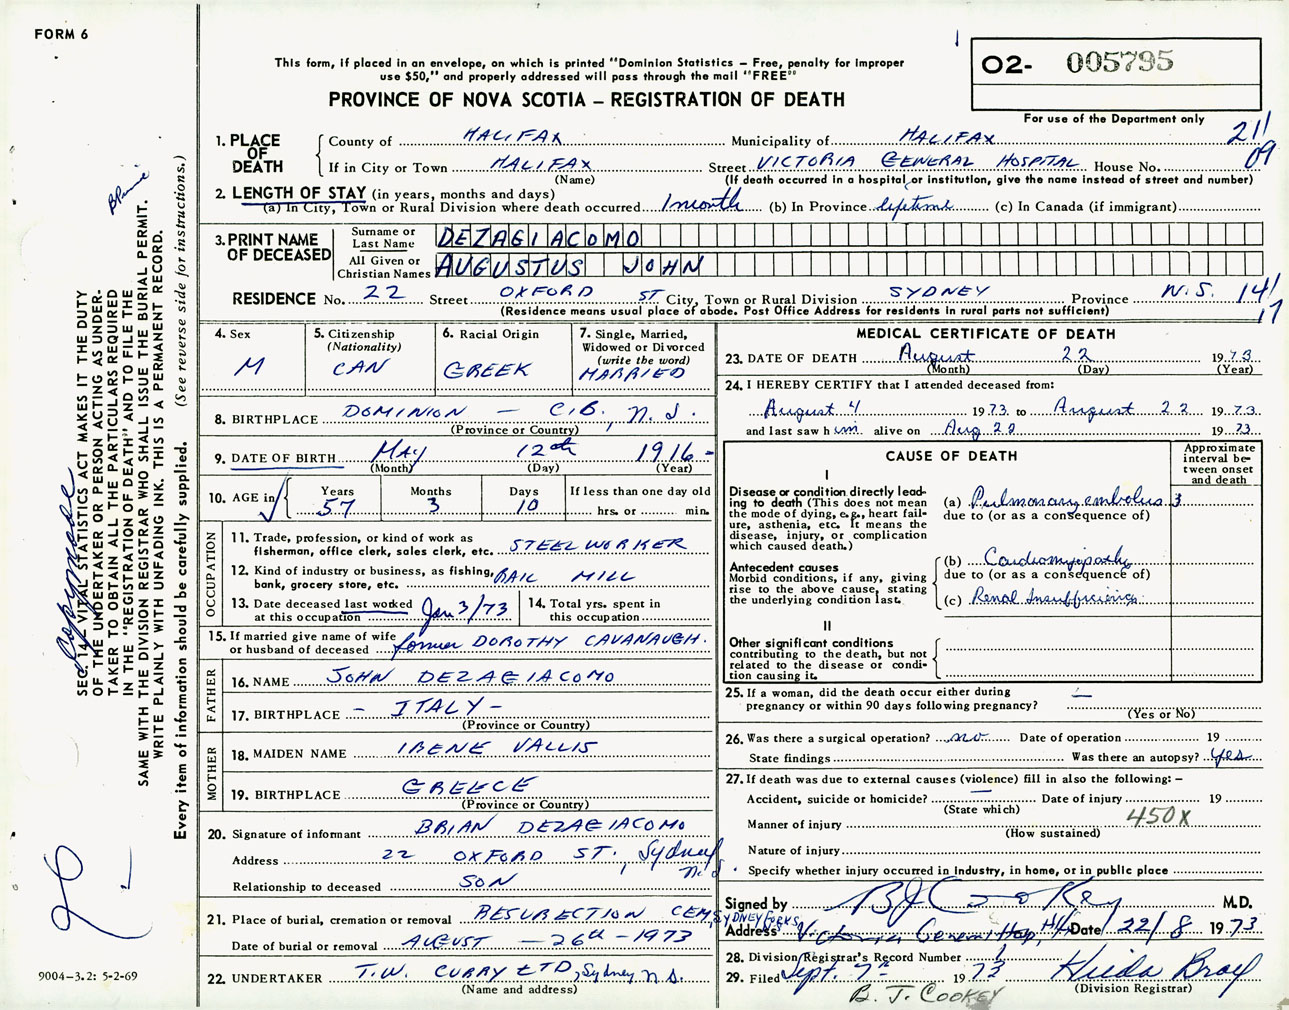 FORM 6
This form, if placed in an envelope, on which is printed "Dominion Statistics – Free, penalty for improper
use $50," and properly addressed will pass through the mail "FREE"
PROVINCE OF NOVA SCOTIA – REGISTRATION OF DEATH
O2- 005795
For use of the Department only
211
09
1. PLACE OF DEATH
County of HALIFAX Municipality of HALIFAX
If in City or Town HALIFAX Street VICTORIA GENERAL HOSPITAL House No.
(Name) (If death occurred in a hospital or institution, give the name instead of street and number)
2. LENGTH OF STAY (in years, months and days)
(a) In City, Town or Rural Division where death occurred 1 month (b) In Province lifetime (c) In Canada (if immigrant)
3. PRINT NAME OF DECEASED
Surname or Last Name DEZAGIACOMO
All Given or Christian Names AUGUSTUS JOHN
RESIDENCE No. 22 Street OXFORD ST City, Town or Rural Division SYDNEY Province N.S. 141
17
(Residence means usual place of abode. Post Office Address for residents in rural parts not sufficient)
4. Sex M
5. Citizenship (Nationality) CAN
6. Racial Origin GREEK
7. Single, Married, Widowed or Divorced (write the word) MARRIED
8. BIRTHPLACE DOMINION – C.B., N.S.
(Province or Country)
9. DATE OF BIRTH MAY 12th 1916 -
(Month) (Day) (Year)
10. AGE in Years 57 Months 3 Days 10 If less than one day old hrs. or min.
OCCUPATION
11. Trade, profession, or kind of work as fisherman, office clerk, sales clerk, etc. STEELWORKER
12. Kind of industry or business, as fishing, bank, grocery store, etc. RAIL MILL
13. Date deceased last worked at this occupation Jan 3/73
14. Total yrs. spent in this occupation
15. If married give name of wife or husband of deceased former DOROTHY CAVANAUGH.
FATHER
16. NAME JOHN DEZAGIACOMO
17. BIRTHPLACE – ITALY –
(Province or Country)
MOTHER
18. MAIDEN NAME IRENE VALLIS
19. BIRTHPLACE GREECE
(Province or Country)
20. Signature of informant BRIAN DEZAGIACOMO
Address 22 OXFORD ST., Sydney N.S.
Relationship to deceased SON
21. Place of burial, cremation or removal RESURECTION CEM, SYDNEY FORKS
Date of burial or removal AUGUST – 26th – 1973
22. UNDERTAKER T.W. CURRY LTD, Sydney N.S.
(Name and address)
MEDICAL CERTIFICATE OF DEATH
23. DATE OF DEATH August 22 1973
(Month) (Day) (Year)
24. I HEREBY CERTIFY that I attended deceased from:
August 4 1973 to August 22 1973
and last saw him alive on Aug 22 1973
CAUSE OF DEATH
Approximate interval between onset and death
I
Disease or condition directly leading to death (This does not mean the mode of dying, e.g., heart failure, asthenia, etc. It means the disease, injury, or complication which caused death.)
(a) Pulmonary embolus 3
due to (or as a consequence of)
Antecedent causes
Morbid conditions, if any, giving rise to the above cause, stating the underlying condition last.
(b) Cardiomyopathy
due to (or as a consequence of)
(c) Renal Insufficiency
II
Other significant conditions contributing to the death, but not related to the disease or condition causing it.
25. If a woman, did the death occur either during pregnancy or within 90 days following pregnancy? –
(Yes or No)
26. Was there a surgical operation? no Date of operation 19
State findings Was there an autopsy? yes
27. If death was due to external causes (violence) fill in also the following: –
Accident, suicide or homicide? Date of injury 19
(State which)
Manner of injury 450X
(How sustained)
Nature of injury
Specify whether injury occurred in Industry, in home, or in public place
Signed by BJ Cookey M.D.
Address Victoria General Hosp, Hfx Date 22/8 1973
28. Division Registrar's Record Number
29. Filed Sept. 7th 1973
(Division Registrar)
B. J. COOKEY
SEC. 14, VITAL STATISTICS ACT MAKES IT THE DUTY
OF THE UNDERTAKER OR PERSON ACTING AS UNDER-
TAKER TO OBTAIN ALL THE PARTICULARS REQUIRED
IN THE "REGISTRATION OF DEATH" AND TO FILE THE
SAME WITH THE DIVISION REGISTRAR WHO SHALL ISSUE THE BURIAL PERMIT.
WRITE PLAINLY WITH UNFADING INK. THIS IS A PERMANENT RECORD.
Every item of information should be carefully supplied. (See reverse side for instructions.)
9004–3.2: 5-2-69